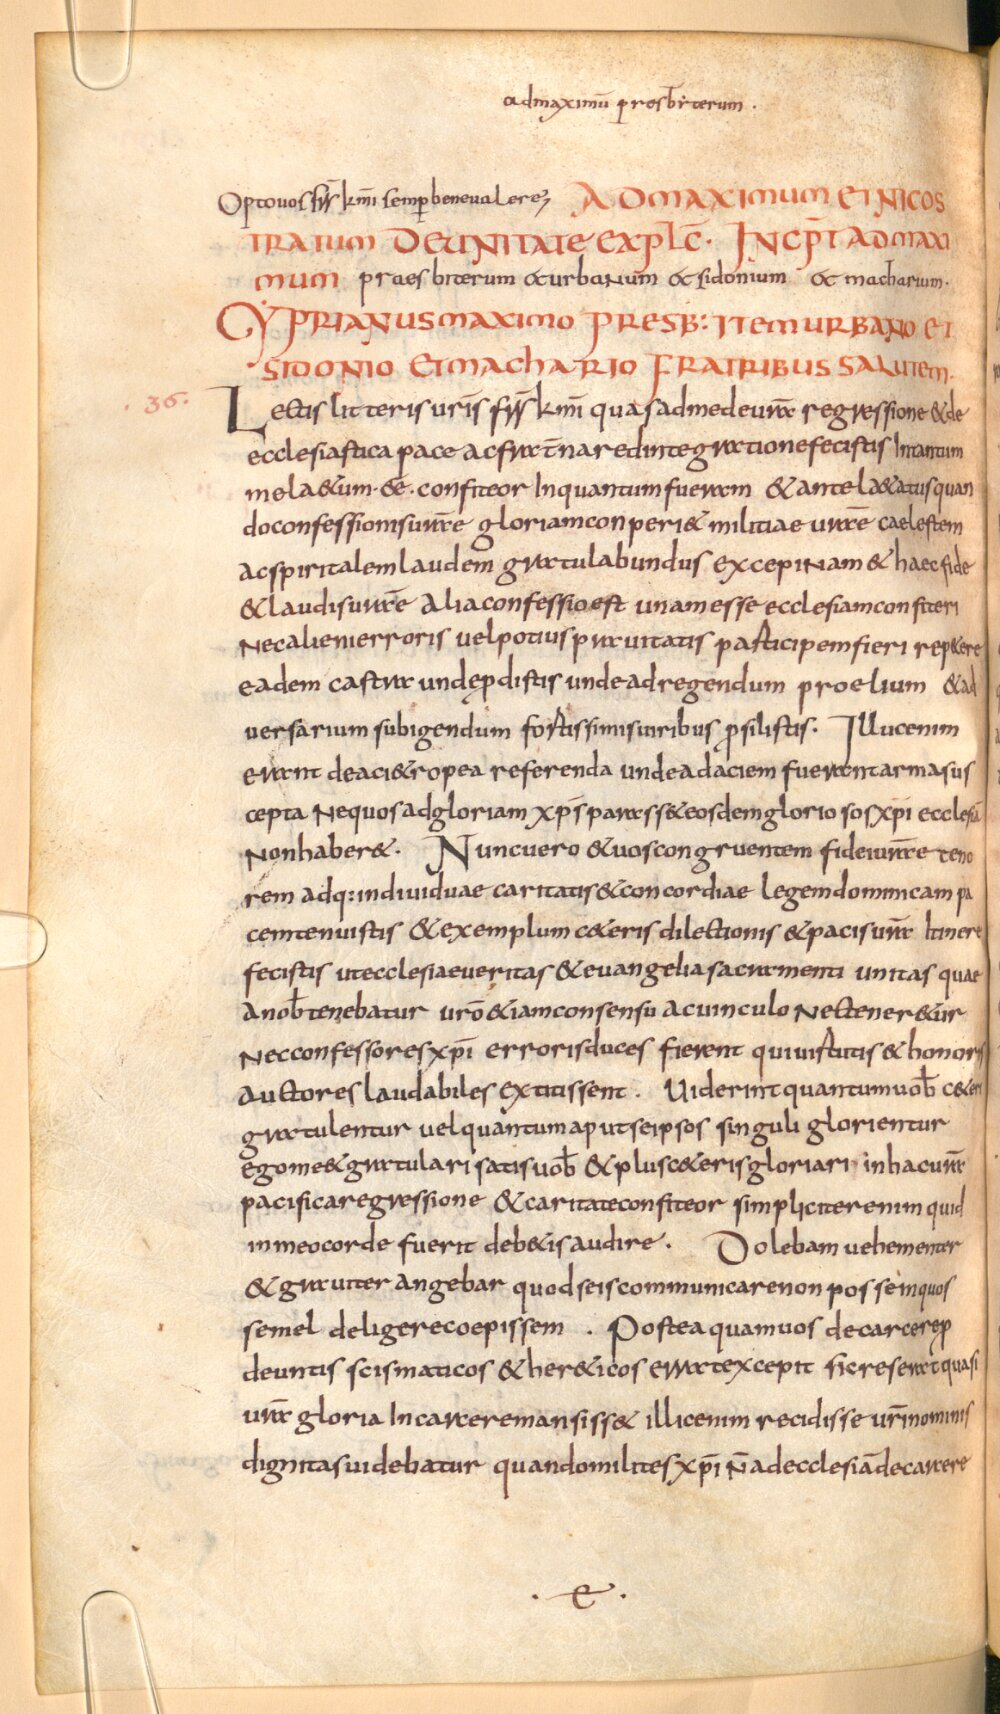 admaximū presbiterum .
Optouos frs̄ km̄i semp benevalere ADMAXIMUM ET NICOS
TRATUM DEUNITATE EXPLC̄ · INCPĪT ADMAXI
MUM praesbiterum & urbanum & sidonium & macharium.
CYPRIANUS MAXIMO PRESB: ITEM URBANO ET
SIDONIO ET MACHARIO FRATRIBUS SALUTEM.
36.
Lectis litteris uris̄ frs̄ km̄i quas ad me de urā regressione & de
ecclesiastica pace ac frat̄na redintegratione fecistis In tantum
me la&um · ēē · confiteor In quantum fueram & ante la&atus quan
do confessionis urar̄e gloriam conperi & militiae urar̄e caelestem
ac spiritalem laudem gratulabundus excepi Nam & haec fide
& laudis urar̄e alia confessio est unam esse ecclesiam confiteri
Nec alieni erroris vel potius prauitatis participem fieri rep&ere
eadem castra unde p̱distis unde ad regendum proelium & ad
versarium subigendum fortissimis uiribus p̱silistis. Illuc enim
erant de acie tropea referenda unde ad aciem fuerant arma sus
cepta Ne quos ad gloriam xps̄ parass& eosdem gloriosos xpī ecclesiā
Non haber&. Nunc uero & uos congruentem fidei urar̄e teno
rem adq: indiuiduae caritatis & concordiae legem dominicam pa
cem tenuistis & exemplum c&eris dilectionis & pacis urar̄ Itinere
fecistis ut ecclesiae ueritas & euangelia sacramenti unitas quae
A nob̄ tenebatur urō &iam consensu ac uinculo Necteneretur
Nec confessores xpī erroris duces fierent qui uirtutis & honoris
Auctores laudabiles extitissent. Uiderint quantum uob̄ c&eri
gratulentur vel quantum aput se ipsos singuli glorientur
ego me & gratulari satis uob̄ & plus c&eris gloriari in hac urar̄
pacifica regressione & caritate confiteor simpliciter enim quid
in meo corde fuerit deb&is audire. Dolebam uehementer
& grauiter angebar quod se is communicare non possem quos
semel deligere coepissem . Postea quam uos de carcere p̱
deuntis scismaticos & her&icos error excepit sic res erat quasi
urar̄ gloria In carcere mansiss& illic enim recidisse urī nominis
dignitas uidebatur quando milites xpī N̄ ad ecclesiā de carcere
. e .